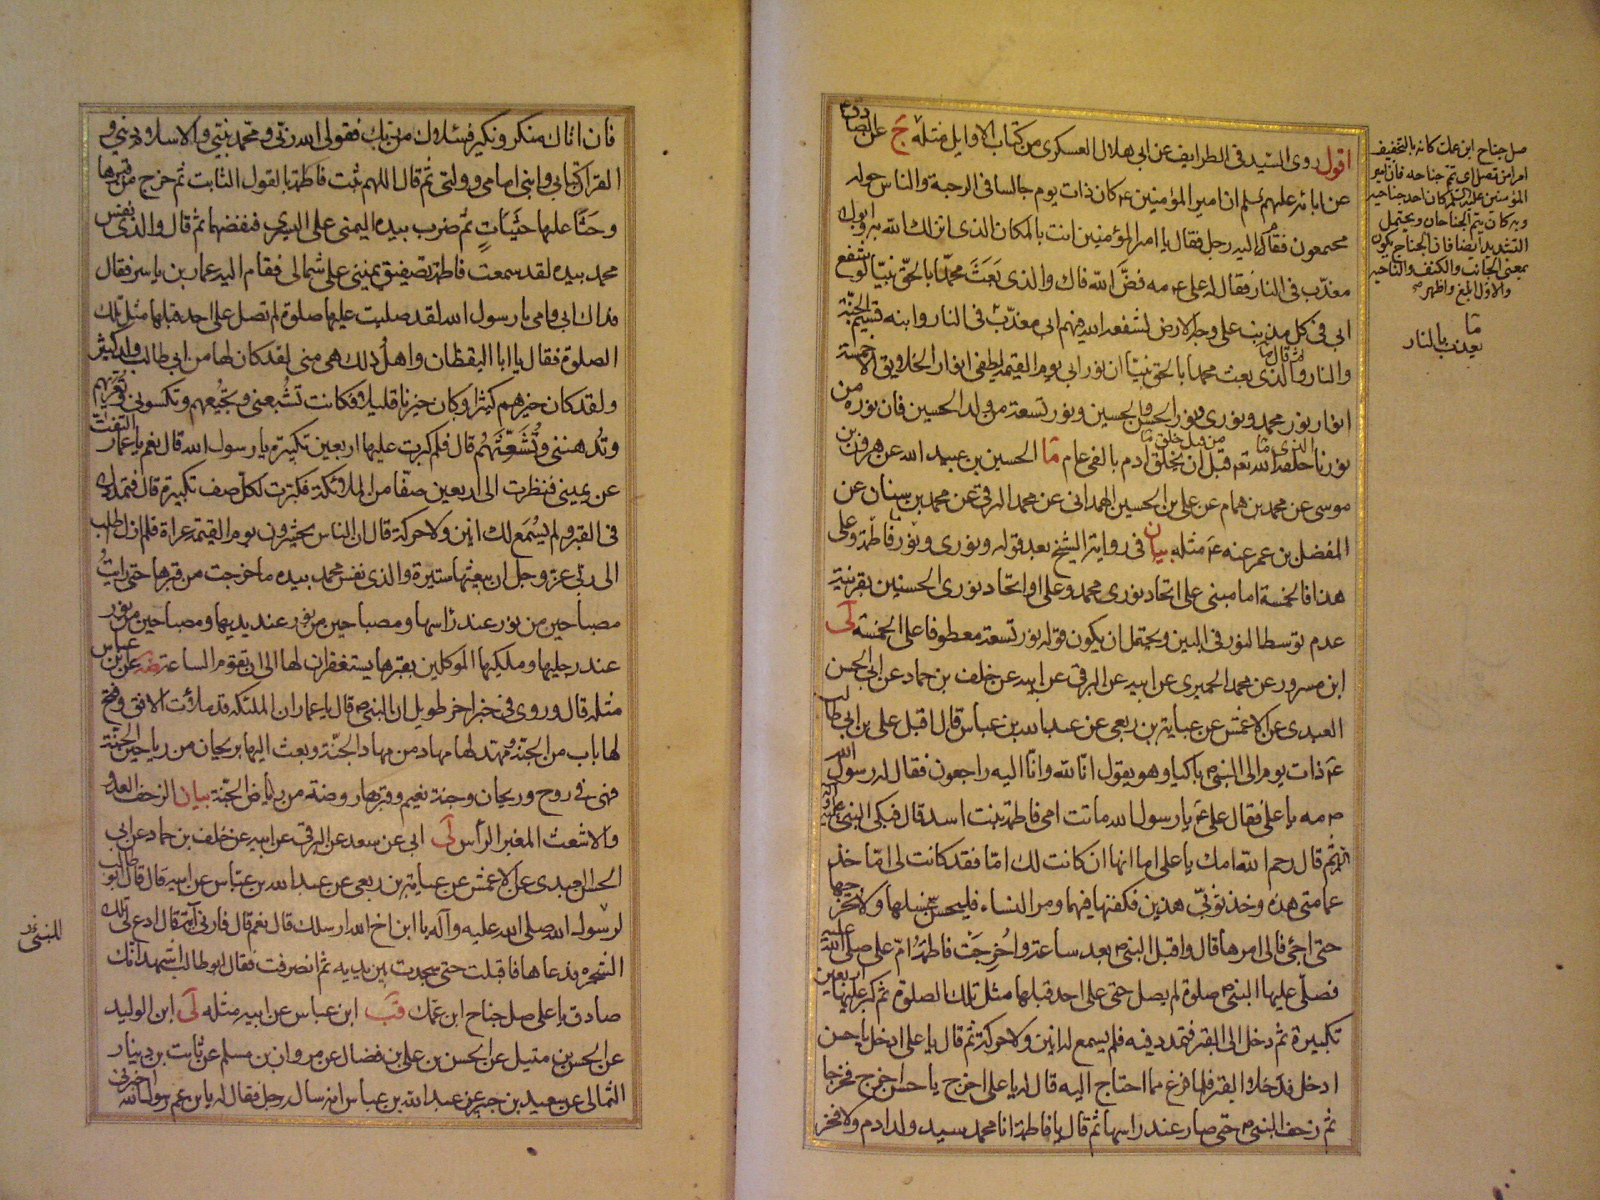 اقول روى السيد فى الطرايف عن ابى هلال العسكرى من كتاب الاوايل مثله ج عن الصادق ع
عن ابائه عليهم السلم ان امير المؤمنين ع كان ذات يوم جالسا فى الرحبة والناس حوله
مجتمعون فقام اليه رجل فقال يا امير المؤمنين انت بالمكان الذى انزلك الله به وابوك
معذب فى النار فقال له على ع مه فض الله فاك والذى بعث محمدا بالحق نبيا لو شفع
ابى فى كل مذنب على وجه الارض لشفعه الله فيهم ابى معذب فى النار وابنه قسيم الجنة
والنار ثم قال والذى بعث محمدا بالحق نبيا ان نور ابى يوم القيمة ليطفى انوار الخلايق الا خمسة
انوار نور محمد ونورى ونور الحسن والحسين ونور تسعة من ولد الحسين فان نوره من
نورنا الذى خلقه الله تعم قبل ان يخلق ادم بالفى عام ما الحسين بن عبيد الله عن هرون بن
موسى عن محمد بن همام عن على بن الحسين الهمدانى عن محمد البرقى عن محمد بن سنان عن
المفضل بن عمر عنه ع مثله بيان فى رواية الشيخ بعد قوله ونورى ونور فاطمة وعلى
هذا فالخمسة اما مبنى على اتحاد نورى محمد وعلى او اتحاد نورى الحسنين بقرينة
عدم توسط النور فى البين ويحتمل ان يكون قوله نور تسعة معطوفا على الخمسة لى
ابن مسرور عن محمد الحميرى عن ابيه عن البرقى عن ابيه عن خلف بن حماد عن ابى الحسن
العبدى عن الاعمش عن عباية بن ربعى عن عبد الله بن عباس قال اقبل على بن ابى طالب
ع ذات يوم الى النبى ص باكيا وهو يقول انا لله وانا اليه راجعون فقال له رسول الله
ص مه يا على فقال على ع يا رسول الله ماتت امى فاطمة بنت اسد قال فبكى النبى ص
ثم قال رحم الله امك يا على اما انها ان كانت لك اما فقد كانت لى اما خذ
عمامتى هذه وخذ ثوبى هذين فكفنها فيهما ومر النساء فليحسن غسلها ولا تخرجها
حتى اجئ فالى امرها قال واقبل النبى ص بعد ساعة واخرجت فاطمة ام على صلى الله عليه
فصلى عليها النبى ص صلوة لم يصل حتى على احد قبلها مثل تلك الصلوة ثم كبر عليها اربعين
تكبيرة ثم دخل الى القبر فتمدد فيه فلم يسمع له انين ولا حركة ثم قال يا على ادخل يا حسن
ادخل فدخلا القبر فلما فرغ مما احتاج اليه قال له يا على اخرج يا حسن اخرج فخرجا
ثم زحف النبى ص حتى صار عند راسها ثم قال يا فاطمة انا محمد سيد ولد ادم ولا فخر
صل جناح ابن عمك كانه بالتخفيف
امرا من تصل اى تتم جناحه فان امير
المؤمنين عليه السلم كان احد جناحيه
وبه كان يتم الجناحان ويحتمل
التشديد ايضا فان الجناح يكون
بمعنى الجانب والكنف والناحية
والاول ابلغ واظهر
ما
يعذب بالنار
فان اتاك منكر ونكير فسئلاوك من ربك فقولى الله ربى ومحمد نبيى والاسلام دينى و
القران كتابى وابنى امامى ووليى ثم قال اللهم ثبت فاطمة بالقول الثابت ثم خرج من قبرها
وحثا عليها حثيات ثم ضرب بيده اليمنى على اليسرى فنفضهما ثم قال والذى نفس
محمد بيده لقد سمعت فاطمة تصفيق يمينى على شمالى فقام اليه عمار بن ياسر فقال
فداك ابى وامى يا رسول الله لقد صليت عليها صلوة لم تصل على احد قبلها مثل تلك
الصلوة فقال يا ابا اليقظان واهل ذلك هى منى لقد كان لها من ابى طالب ولد كثير
ولقد كان خيرهم كثيرا وكان خيرنا قليلا فكانت تشبعنى وتجيعهم وتكسونى وتعريهم
وتدهننى وتشعثهم قال فلم كبرت عليها اربعين تكبيرة يا رسول الله قال نعم يا عمار التفت
عن يمينى فنظرت الى اربعين صفا من الملائكة فكبرت لكل صف تكبيرة قال فتمددك
فى القبر ولم يسمع لك انين ولا حركة قال ان الناس يحشرون يوم القيمة عراة فلم ازل اطلب
الى ربى عز وجل ان يبعثها ستيرة والذى نفس محمد بيده ما خرجت من قبرها حتى رايت
مصباحين من نور عند راسها ومصباحين من نور عند يديها ومصباحين من نور
عند رجليها وملكيها الموكلين بقبرها يستغفران لها الى ان تقوم الساعة ضه عن ابن عباس
مثله قال وروى فى خبر اخر طويل ان النبى ص قال يا عمار ان الملئكة قد ملات الافق وفتح
لها باب من الجنة ومهد لها مهاد من مهاد الجنة وبعث اليها بريحان من رياحين الجنة
فهى فى روح وريحان وجنة نعيم وقبرها روضة من رياض الجنة بيان الزحف العدو
والاشعث المغبر الراس لى ابى عن سعد عن البرقى عن ابيه عن خلف بن حماد عن ابى
الحسن العبدى عن الاعمش عن عباية بن ربعى عن عبد الله بن عباس عن ابيه قال قال ابو طالب
لرسول الله صلى الله عليه وآله يا ابن اخ الله ارسلك قال نعم قال فارنى آية قال ادع لى تلك
الشجره فدعاها فاقبلت حتى سجدت بين يديه ثم انصرفت فقال ابو طالب اشهد انك
صادق يا على صل جناح ابن عمك قب ابن عباس عن ابيه مثله لى ابن الوليد
عن الحسن بن متيل عن الحسن بن على بن فضال عن مروان بن مسلم عن ثابت بن دينار
الثمالى عن سعيد بن جبير عن عبد الله بن عباس انه ساله رجل فقال له يا بن عم رسول الله اخبرنى